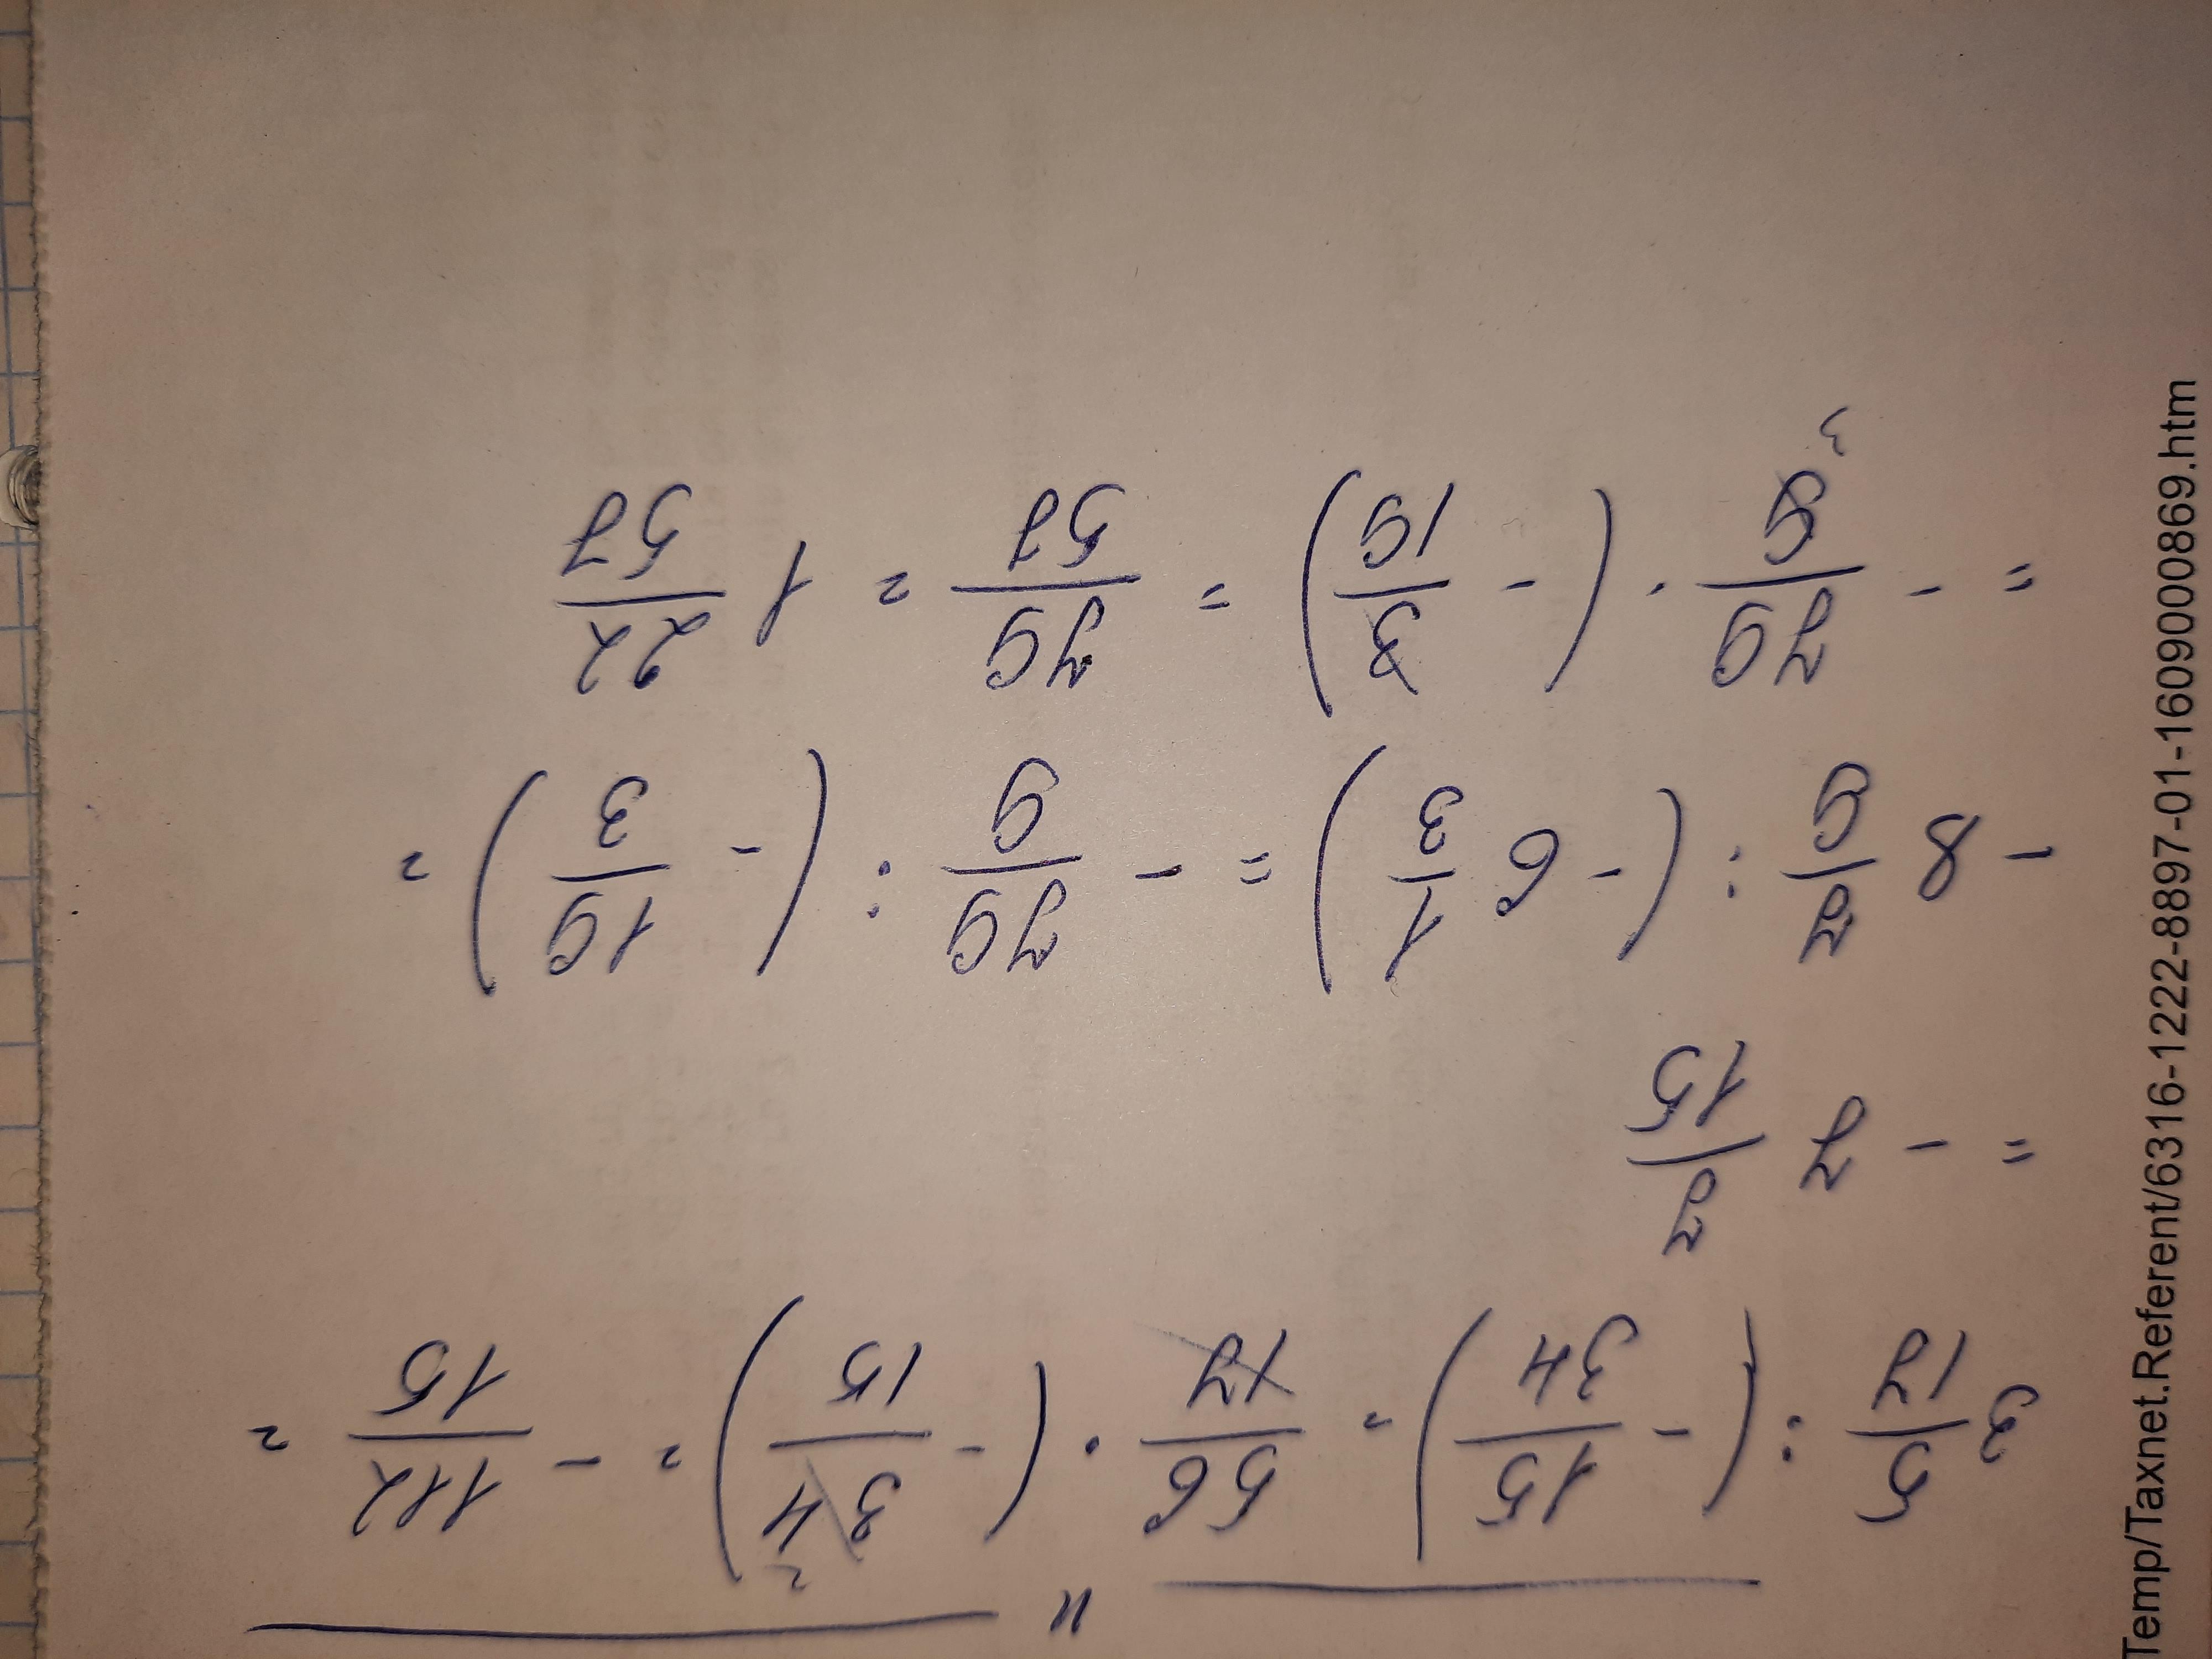 3 5/17 : (- 15/34) = 56/17 · (- 34/15) = - 112/15 =
2
= - 7 7/15
- 8 7/9 : (- 6 1/3) = - 79/9 : (- 19/3) =
= - 79/9 · (- 3/19) = 79/57 = 1 22/57
3
Temp/Taxnet.Referent/6316-1222-8897-01-1609000869.htm